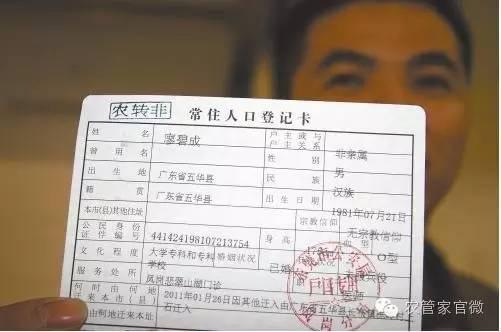 农转非 常住人口登记卡
姓名 廖碧成 户主或与户主关系 非亲属
曾用名 性别 男
出生地 广东省五华县 民族 汉族
籍贯 广东省五华县 出生日期 1981年07月21日
本市(县)其他住址 宗教信仰 无宗教信仰
公民身份证件编号 441424198107213754 身高 O型
文化程度 大学专科和专科学校 婚姻状况 已婚
服务处所 凤岗悲翠山湖门诊
何时由何地迁来本市(县) 2011年01月26日因其他迁入由广东省五华县
何时由何地迁 石迁入
农管家官微